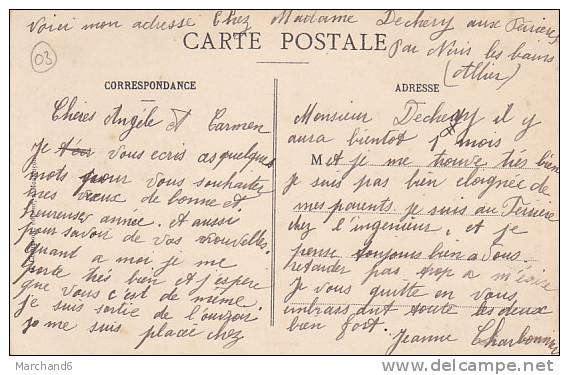 Voici mon adresse Chez Madame Dechery aux Ferrières
Par Néris les bains
(Allier)
03
CARTE POSTALE
CORRESPONDANCE
Chères Angéle et Carmen
Je vous ecris as quelques
mots pour vous souhaiter
mes vœux de bonne et
heureuse année. et aussi
pour savoir de vos nouvelles.
quant a moi je me
porte très bien et j'espere
que vous c'est de même
je suis sortie de l'ouvroir
je me suis placé chez
ADRESSE
Monsieur Dechery il y
aura bientot 1 mois
M et je me trouve très bien
je suis pas bien eloignée de
mes parents je suis au Ferriere
chez l'ingenieur, et je
pense toujours bien a vous.
retarder pas trop a m'écrire
Je vous quitte en vous
embrassant toute les deux
bien fort.
Jeanne Charbonnier
Marchand6
©delcampe.net